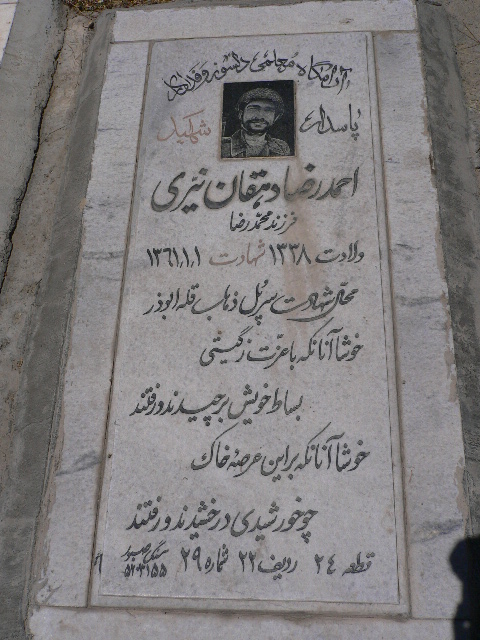 آرامگاه معلمی دلسوز و فداکار
پاسدار شهید
احمد رضا دهقان نیّری
فرزند محمد رضا
ولادت ۱۳۳۸ شهادت ۱۳۶۱/۱/۱
محل شهادت سرپُل ذهاب قله ابوذر
خوشا آنانکه با عزت ز گیتی
بساط خویش برچیدند و رفتند
خوشا آنانکه بر این عرصهٔ خاک
چو خورشیدی درخشیدند و رفتند
قطعه ۲۴ ردیف ۲۲ شماره ۲۹